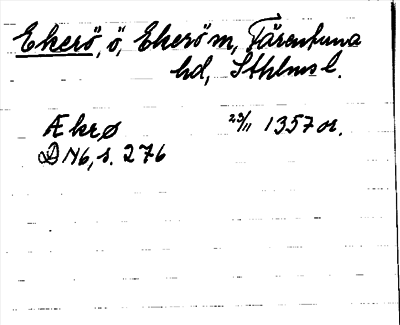 Ekerö, ö, Ekerö m, Färentuna
hd, Sthlms l.
Ækrø 23/11 1357 or.
DN 6, s. 276